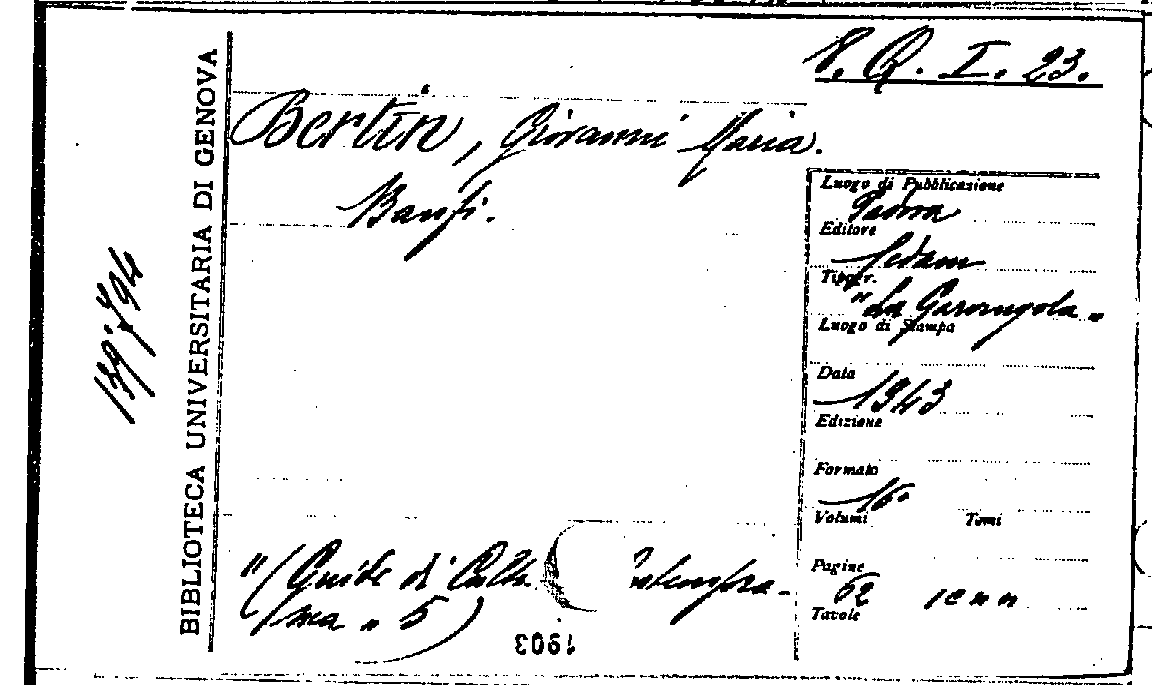 V. Q. I. 23.
BIBLIOTECA UNIVERSITARIA DI GENOVA
Bertin, Giovanni Maria.
Banfi.
Luogo di Pubblicazione
Padova
Editore
Cedam
Tipogr.
"La Garangola"
Luogo di Stampa
Data
1943
Edizione
Formato
16°
Volumi Tomi
Pagine
62
Tavole
"(Guide di Cult
ma „ 5)
1903